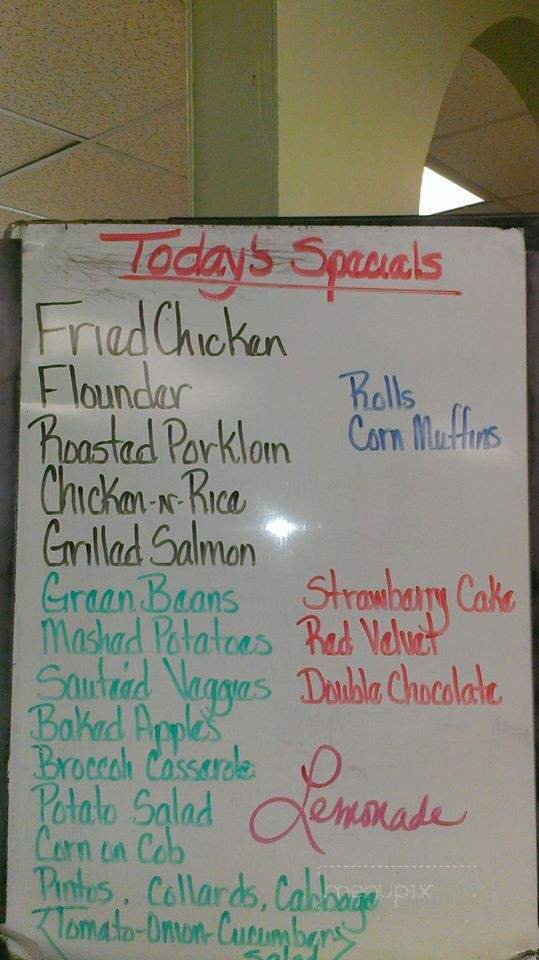 Today's Specials
Fried Chicken
Flounder
Roasted Porkloin
Chicken-N-Rice
Grilled Salmon
Rolls
Corn Muffins
Green Beans
Mashed Potatoes
Sauteéd Veggies
Baked Apples
Broccoli Casserole
Potato Salad
Corn on Cob
Pintos, Collards, Cabbage
(Tomato-Onion-Cucumber)
Salad
Strawberry Cake
Red Velvet
Double Chocolate
Lemonade
menupix